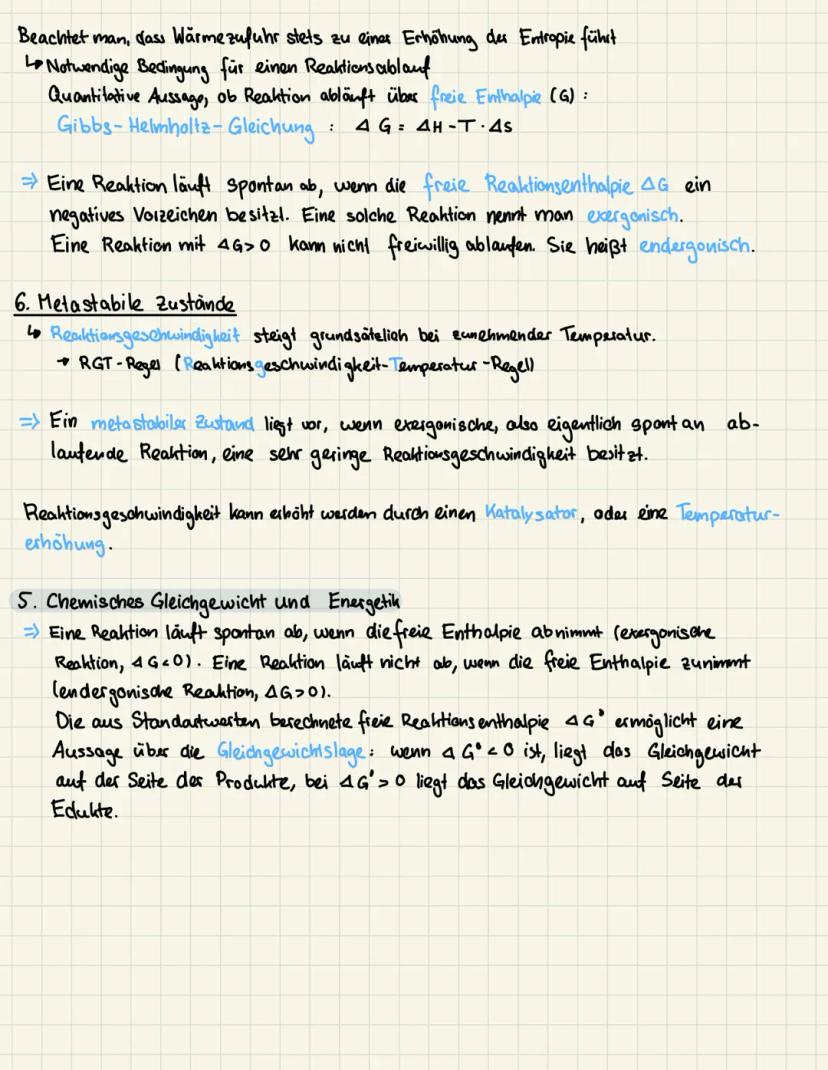 Beachtet man, dass Wärmezufuhr stets zu einer Erhöhung der Entropie führt
↳ Notwendige Bedingung für einen Reaktionsablauf
Quantitative Aussage, ob Reaktion abläuft über freie Enthalpie (G) :
Gibbs-Helmholtz-Gleichung : Δ G = ΔH - T · ΔS
⇒ Eine Reaktion läuft spontan ab, wenn die freie Reaktionsenthalpie ΔG ein
negatives Vorzeichen besitzt. Eine solche Reaktion nennt man exergonisch.
Eine Reaktion mit ΔG > 0 kann nicht freiwillig ablaufen. Sie heißt endergonisch.
6. Metastabile Zustände
↳ Reaktionsgeschwindigkeit steigt grundsätzlich bei zunehmender Temperatur.
→ RGT-Regel (Reaktionsgeschwindigkeit-Temperatur-Regel)
⇒ Ein metastabiler Zustand liegt vor, wenn exergonische, also eigentlich spontan ab-
laufende Reaktion, eine sehr geringe Reaktionsgeschwindigkeit besitzt.
Reaktionsgeschwindigkeit kann erhöht werden durch einen Katalysator, oder eine Temperatur-
erhöhung.
5. Chemisches Gleichgewicht und Energetik
⇒ Eine Reaktion läuft spontan ab, wenn die freie Enthalpie abnimmt (exergonische
Reaktion, ΔG<0). Eine Reaktion läuft nicht ab, wenn die freie Enthalpie zunimmt
(endergonische Reaktion, ΔG>0).
Die aus Standartwerten berechnete freie Reaktionsenthalpie ΔG° ermöglicht eine
Aussage über die Gleichgewichtslage: wenn ΔG°<0 ist, liegt das Gleichgewicht
auf der Seite der Produkte, bei ΔG°>0 liegt das Gleichgewicht auf Seite der
Edukte.